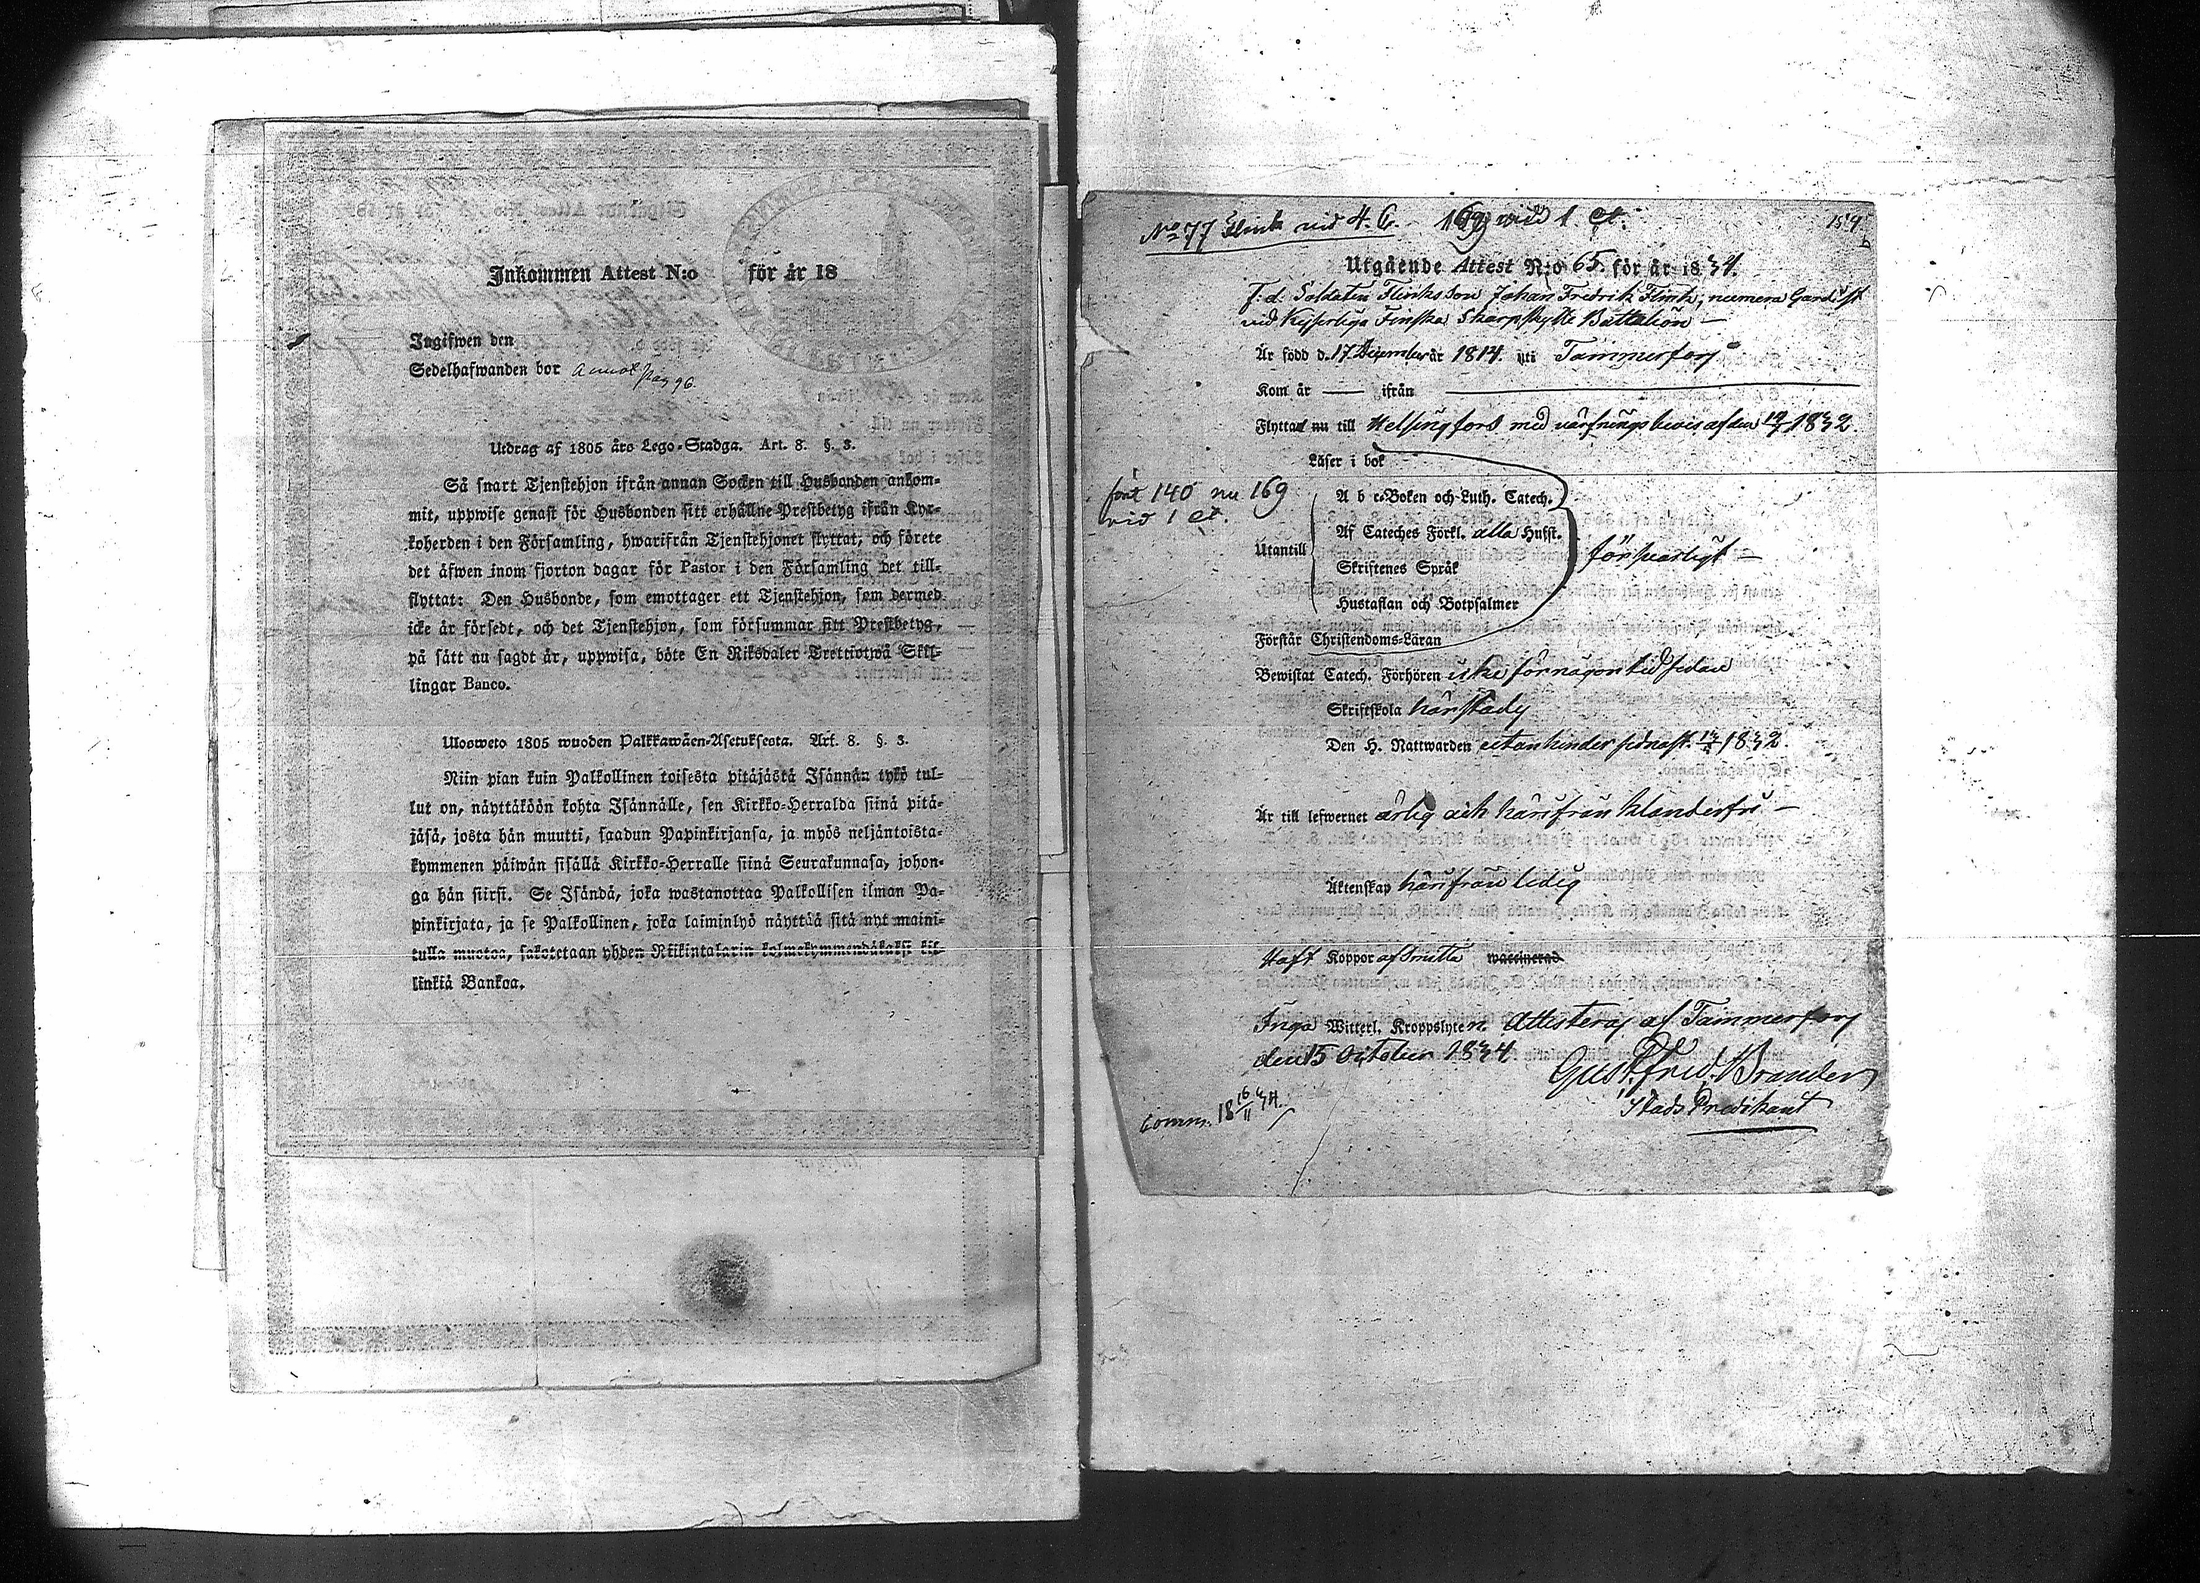 Inkommen Attest N:o för år 18
Ingifwen den
Sedelhafwanden bor annot pag 96.
Utdrag af 1805 års Lego-Stadga. Art. 8. §. 3.
Så snart Tjenstehjon ifrån annan Socken till Husbonden ankom-
mit, uppwise genast för Husbonden sitt erhållne Prestbetyg ifrån Kyr-
koherden i den Församling, hwarifrån Tjenstehjonet flyttat, och förete
det äfwen inom fjorton dagar för Pastor i den Församling det till-
flyttat: Den Husbonde, som emottager ett Tjenstehjon, som dermed
icke är försedt, och det Tjenstehjon, som försummar sitt Prestbetyg,
på sätt nu sagdt är, uppwisa, böte En Riksdaler Trettiotwå Skil-
lingar Banco.
Ulosweto 1805 wuoden Palkkawäen-Asetuksesta. Art. 8. §. 3.
Niin pian kuin Palkollinen toisesta pitäjästä Isännän tykö tul-
lut on, näyttäköön kohta Isännälle, sen Kirkko-Herralda siinä pitä-
jäsä, josta hän muutti, saadun Papinkirjansa, ja myös neljäntoista-
kymmenen päiwän sisällä Kirkko-Herralle siinä Seurakunnasa, johon-
ga hän siirsi. Se Isändä, joka wastanottaa Palkollisen ilman Pa-
pinkirjata, ja se Palkollinen, joka laiminlyö näyttää sitä nyt maini-
tulla muotoa, sakotetaan yhden Riikintalarin kolmekymmendäkaksi kil-
linkiä Bankoa.
No 77 Flink vid 4. C. 169 vid 1 Ct.
Utgående Attest N:o 65. för år 1834.
F. d. Soldaten Flinks Son Johan Fredrik Flink, numera Gardist
vid Kejserliga Finska Skarpskytte Battalion —
Är född d. 17 December år 1814 uti Tammerfors
Kom år — ifrån
Flyttad nu till Helsingfors med värfnings bevis af den 19/7 1832.
Läser i bok
förut 140 nu 169
vid 1 Ct.
A b c-Boken och Luth. Catech.
Af Cateches Förkl. alla Hufst.
Utantill
Skriftenes Språk
försvarligt —
Hustaflan och Botpsalmer
Förstår Christendoms-Läran
Bewistat Catech. Förhören icke för någon tid sedan
Skriftskola härstädes
Den H. Nattwarden utan hinder sednast 1832.
Är till lefwernet ärlig och härifrån klanderfri —
Äktenskap härifrån ledig
Haft Koppor af Smitta waccinerad
Inga Witterl. Kroppslyten. Attesteras af Tammerfors
den 15 October 1834
Gust. Fred. Brander
Stads Predikant
Comm. 18 16/11 34.